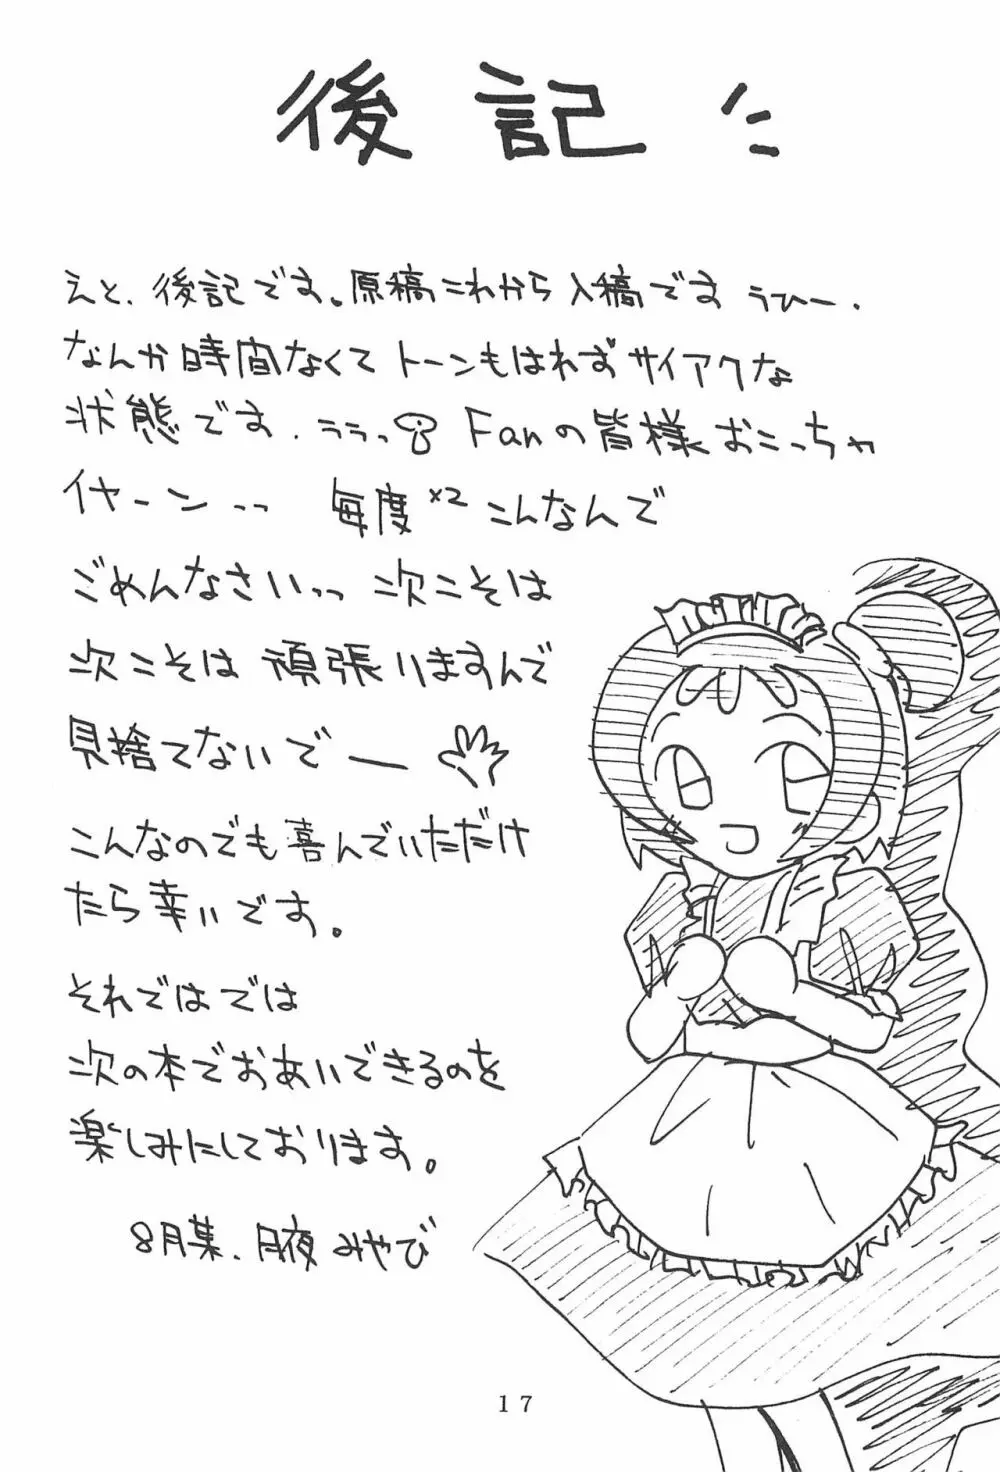 後記
えと、後記です。原稿これから入稿です うひー.
なんか時間なくてトーンもはれずサイアクな
状態です. ララっ Fanの皆様おこっちゃ
イヤーンっっ 毎度×2こんなんで
ごめんなさいっっ 次こそは
次こそは 頑張いますんで
見捨てないでー
こんなのでも喜んでいただけ
たら幸いです。
それではでは
次の本でおあいできるのを
楽しみにしております。
8月某. 月夜みやび
17